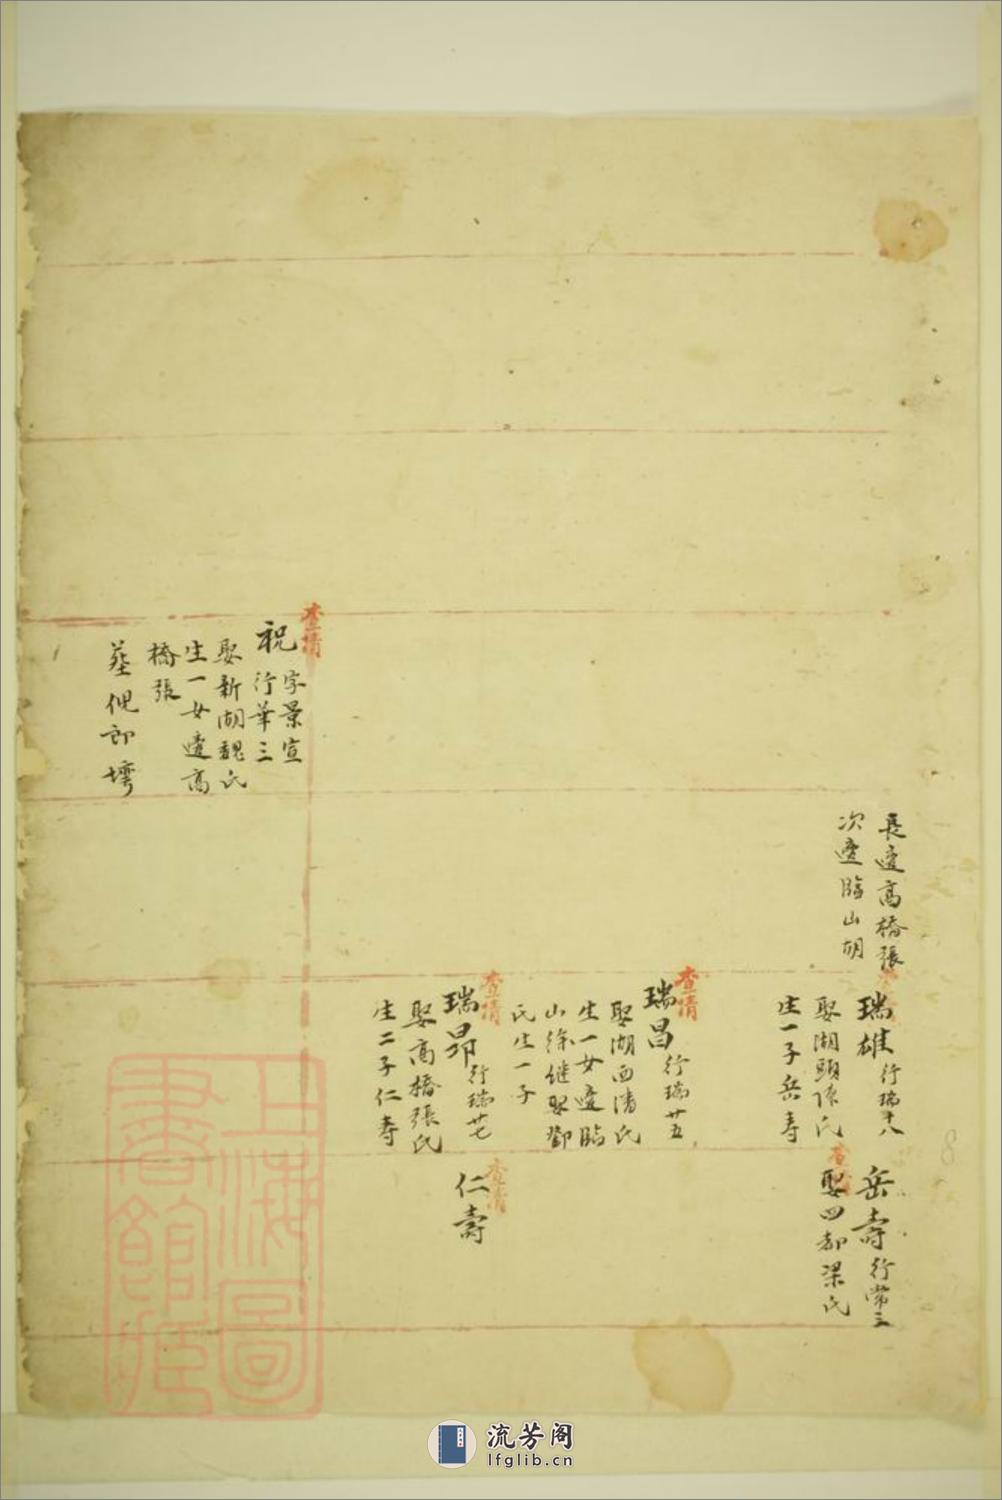 長適高橋張
次適臨山胡
瑞雄 行瑞十八
娶湖頭陳氏
生一子岳壽
岳壽 行常三
娶四都梁氏
查清
瑞昌 行瑞廿五
娶湖西潘氏
生一女適臨
山徐継娶鄧
氏生一子
查清
瑞昂 行瑞廿七
娶高橋張氏
生二子仁壽
查清
仁壽
查清
祝 字景宣
行華三
娶新湖魏氏
生一女適高
橋張
葬倪郎塆
上海圖
書館藏
流芳阁
lfglib.cn
8